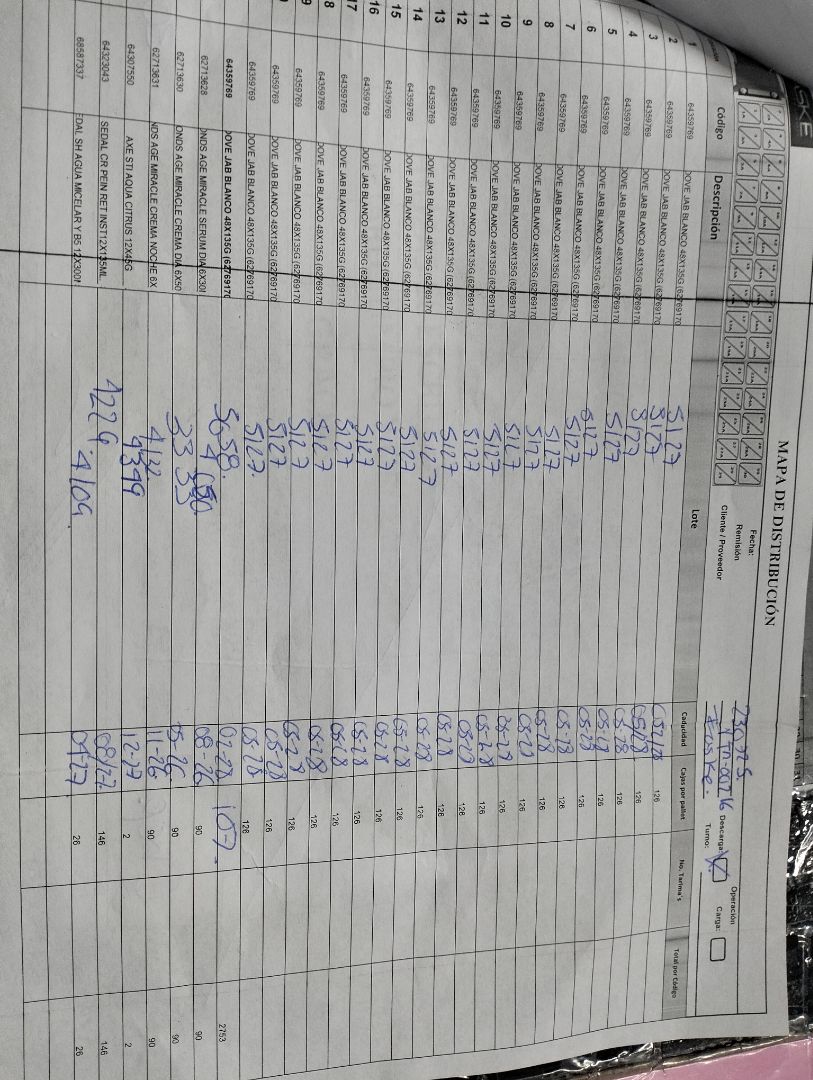 SKE
MAPA DE DISTRIBUCIÓN
Fecha: 230725
Operación
Remisión
Descarga:
Carga:
Cliente / Proveedor
Turno:
Código Descripción Lote Caducidad Cajas por pallet No. Tarima's Total por Código
1 64359769 DOVE JAB BLANCO 48X135G (62769170 5127 05-28 126
2 64359769 DOVE JAB BLANCO 48X135G (62769170 5127 05-28 126
3 64359769 DOVE JAB BLANCO 48X135G (62769170 5127 05-28 126
4 64359769 DOVE JAB BLANCO 48X135G (62769170 5127 05-28 126
5 64359769 DOVE JAB BLANCO 48X135G (62769170 5127 05-28 126
6 64359769 DOVE JAB BLANCO 48X135G (62769170 5127 05-28 126
7 64359769 DOVE JAB BLANCO 48X135G (62769170 5127 05-28 126
8 64359769 DOVE JAB BLANCO 48X135G (62769170 5127 05-28 126
9 64359769 DOVE JAB BLANCO 48X135G (62769170 5127 05-28 126
10 64359769 DOVE JAB BLANCO 48X135G (62769170 5127 05-28 126
11 64359769 DOVE JAB BLANCO 48X135G (62769170 5127 05-28 126
12 64359769 DOVE JAB BLANCO 48X135G (62769170 5127 05-28 126
13 64359769 DOVE JAB BLANCO 48X135G (62769170 5127 05-28 126
14 64359769 DOVE JAB BLANCO 48X135G (62769170 5127 05-28 126
15 64359769 DOVE JAB BLANCO 48X135G (62769170 5127 05-28 126
16 64359769 DOVE JAB BLANCO 48X135G (62769170 5127 05-28 126
17 64359769 DOVE JAB BLANCO 48X135G (62769170 5127 05-28 126
8 64359769 DOVE JAB BLANCO 48X135G (62769170 5127 05-28 126
9 64359769 DOVE JAB BLANCO 48X135G (62769170 5127 05-28 126
64359769 DOVE JAB BLANCO 48X135G (62769170 5127 05-28 126
64359769 DOVE JAB BLANCO 48X135G (62769170 5127. 05-28 126
64359769 DOVE JAB BLANCO 48X135G (62769170 5658. 02-28 107. 2753
62713628 ONDS AGE MIRACLE SERUM DIA 6X30 08-26 90 90
62713630 ONDS AGE MIRACLE CREMA DIA 6X50 33 33 90 90
62713631 NDS AGE MIRACLE CREMA NOCHE 6X 4122 11-26 90 90
64307550 AXE STI AQUA CITRUS 12X45G 4399 12-27 2 2
64323043 SEDAL CR PEIN RET INST12X135ML 4229 08/27 146 146
68587337 EDAL SH AGUA MICELAR Y B5 12X300 4109. 04-27 26 26